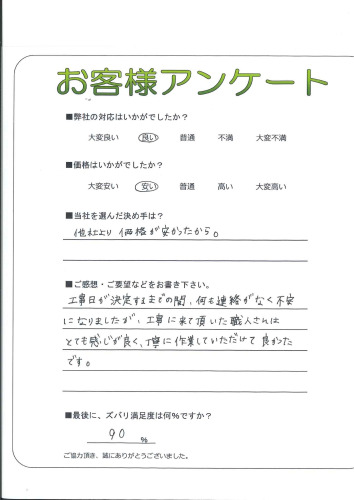 お客様アンケート
■弊社の対応はいかがでしたか？
大変良い 良い 普通 不満 大変不満
■価格はいかがでしたか？
大変安い 安い 普通 高い 大変高い
■当社を選んだ決め手は？
他社より価格が安かったから。
■ご感想・ご要望などをお書き下さい。
工事日が決定するまでの間、何も連絡がなく不安
になりましたが、工事に来て頂いた職人さんは
とても感じが良く、丁寧に作業していただけて良かった
です。
■最後に、ズバリ満足度は何%ですか？
90 %
ご協力頂き、誠にありがとうございました。